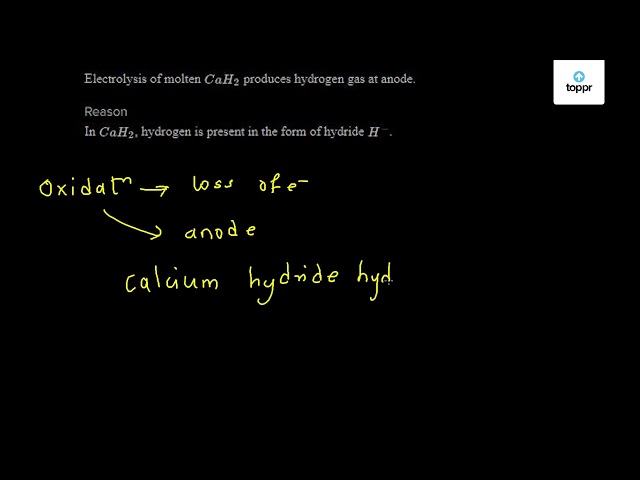 Electrolysis of molten CaH₂ produces hydrogen gas at anode.
toppr
Reason
In CaH₂, hydrogen is present in the form of hydride H⁻.
Oxidatⁿ → loss of e⁻
→ anode
calcium hydride hyd